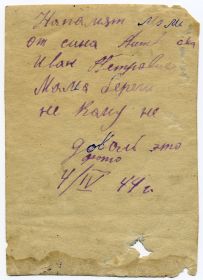 На памят мами
от сина
Иван Петрович
Мама береги
не кому не
довай это
фото
4/IV 44 г.